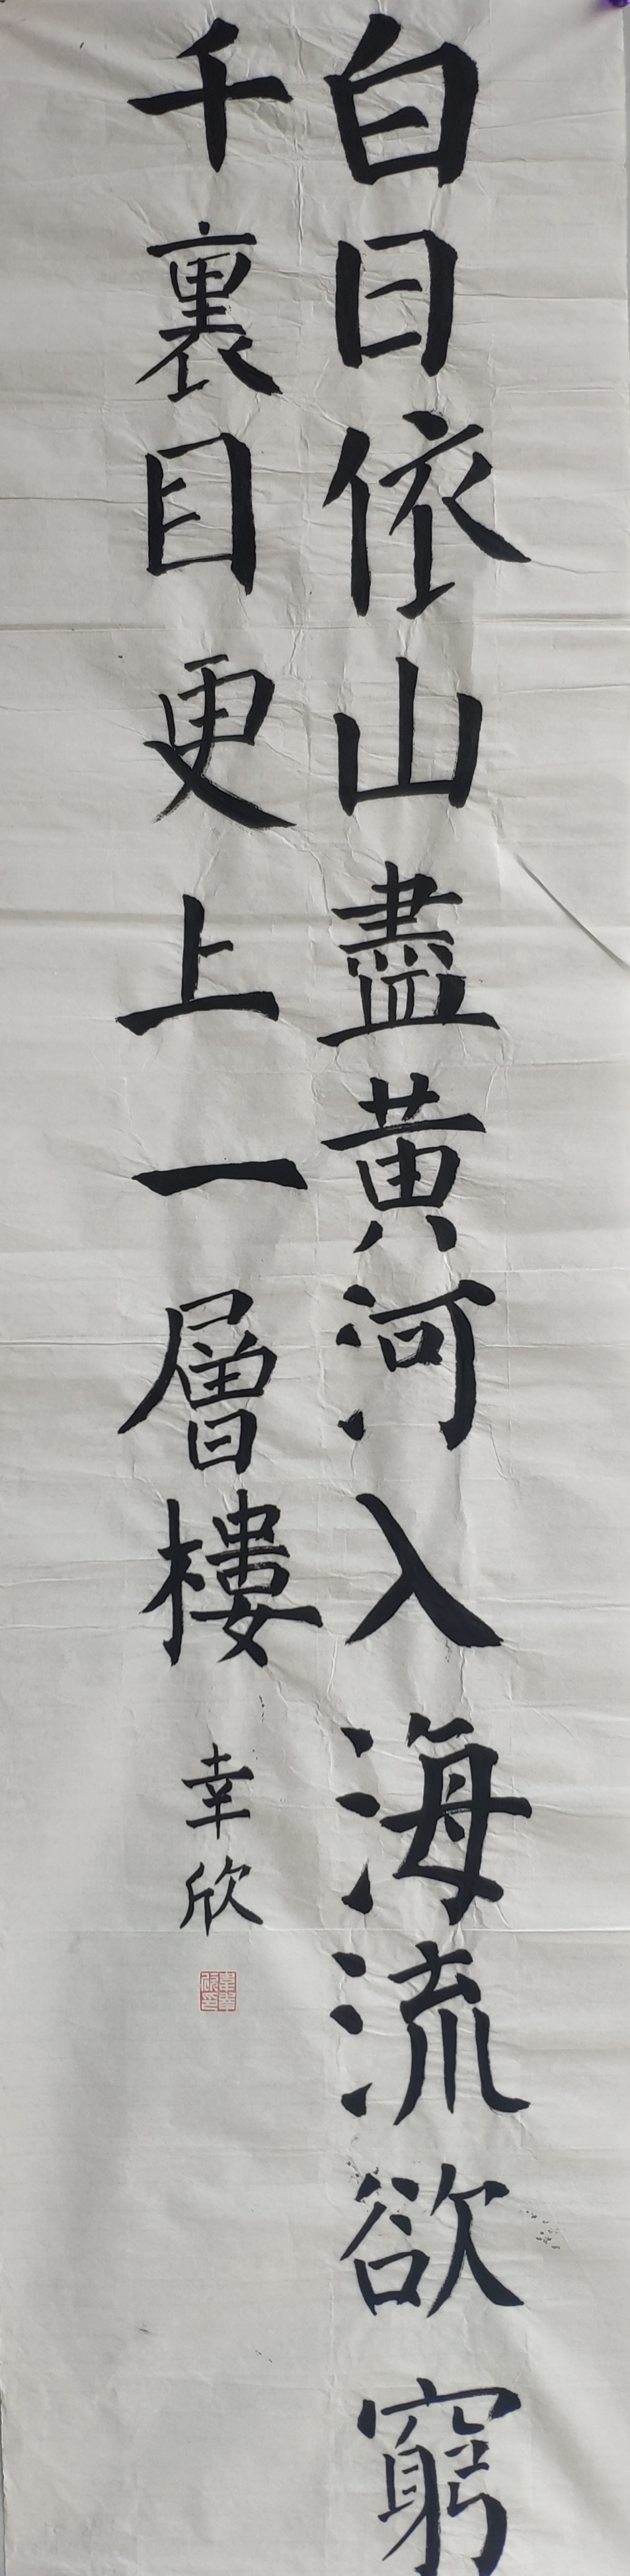 白日依山盡黄河入海流欲窮
千裏目更上一層樓
幸欣